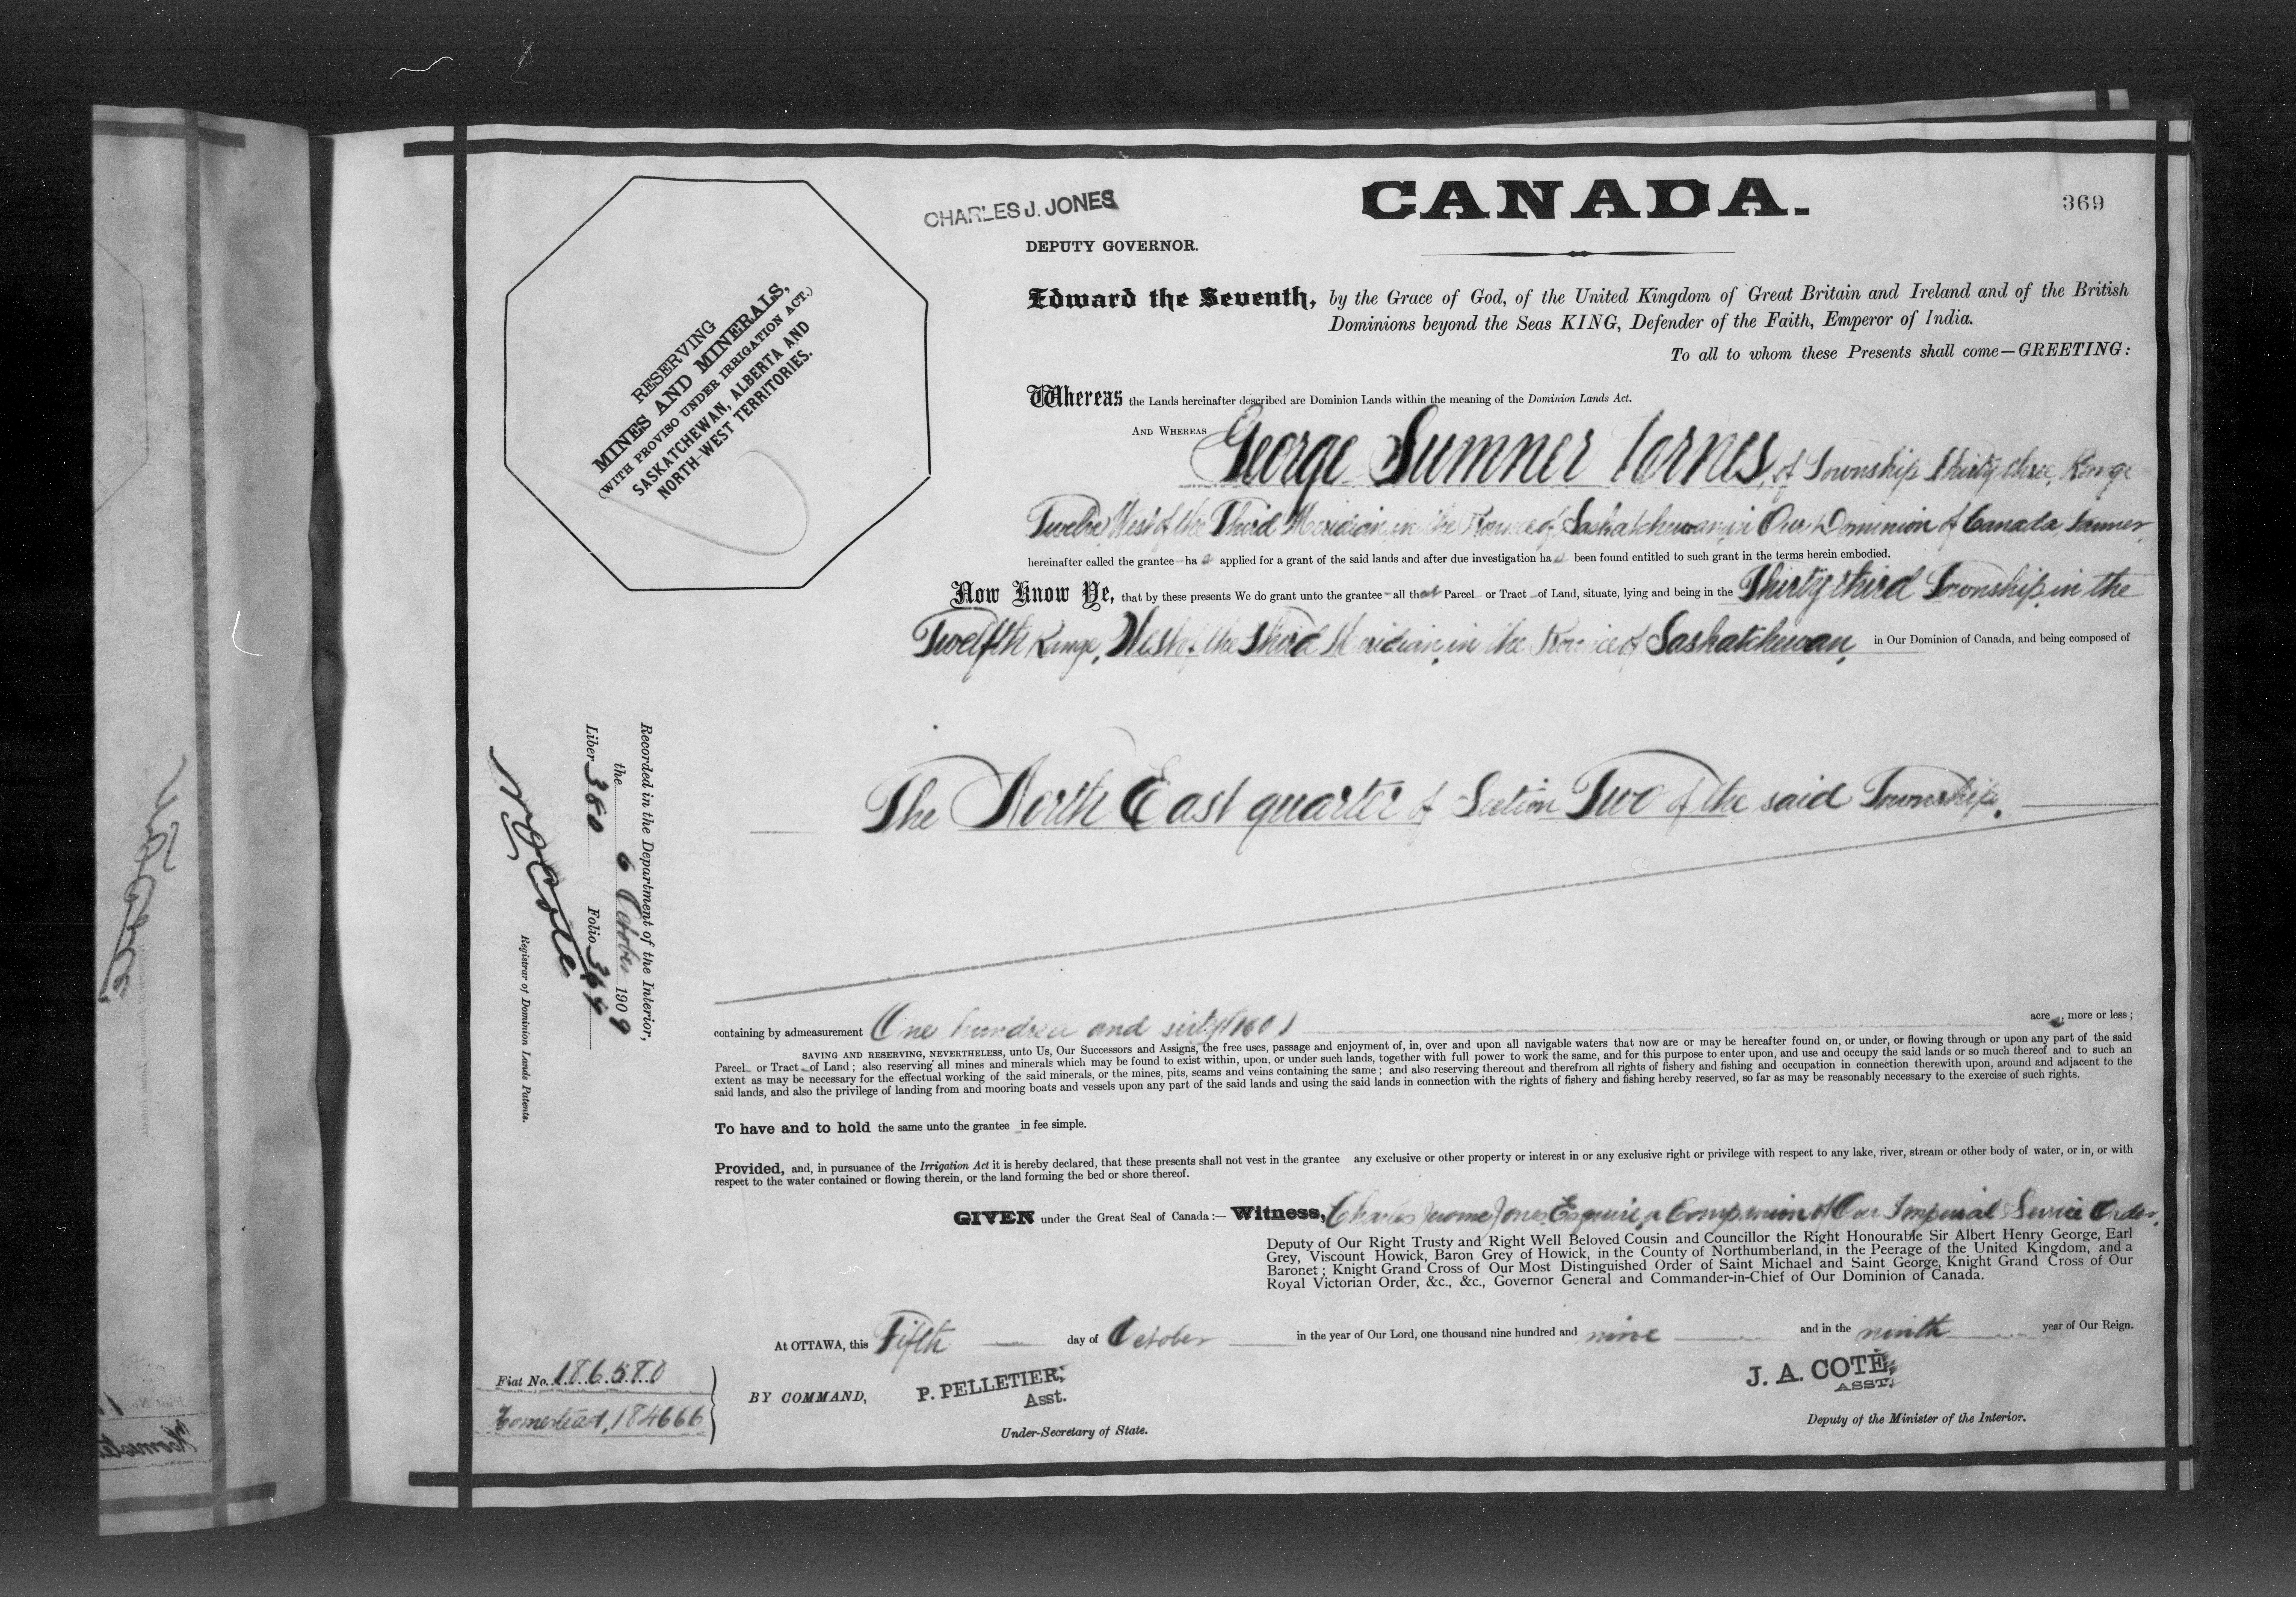 CHARLES J. JONES
DEPUTY GOVERNOR.
CANADA.
369
RESERVING
MINES AND MINERALS,
(WITH PROVISO UNDER IRRIGATION ACT.)
SASKATCHEWAN, ALBERTA AND
NORTH-WEST TERRITORIES.
Edward the Seventh, by the Grace of God, of the United Kingdom of Great Britain and Ireland and of the British
Dominions beyond the Seas KING, Defender of the Faith, Emperor of India.
To all to whom these Presents shall come—GREETING:
Whereas the Lands hereinafter described are Dominion Lands within the meaning of the Dominion Lands Act.
AND WHEREAS George Sumner of Township Thirty three, Range
Twelve West of the Third Meridian, in the Province of Saskatchewan, in Our Dominion of Canada, farmer,
hereinafter called the grantee has applied for a grant of the said lands and after due investigation has been found entitled to such grant in the terms herein embodied.
Now Know Ye, that by these presents We do grant unto the grantee—all that Parcel or Tract of Land, situate, lying and being in the Thirty third Township, in the
Twelfth Range, West of the Third Meridian, in the Province of Saskatchewan, in Our Dominion of Canada, and being composed of
The North East quarter of Section Two of the said Township.
Recorded in the Department of the Interior,
the 6 October 1909
Liber 360 Folio
N O Coté
Registrar of Dominion Lands Patents.
containing by admeasurement One hundred and sixty (160) acres, more or less;
SAVING AND RESERVING, NEVERTHELESS, unto Us, Our Successors and Assigns, the free uses, passage and enjoyment of, in, over and upon all navigable waters that now are or may be hereafter found on, or under, or flowing through or upon any part of the said
Parcel or Tract of Land; also reserving all mines and minerals which may be found to exist within, upon, or under such lands, together with full power to work the same, and for this purpose to enter upon, and use and occupy the said lands or so much thereof and to such an
extent as may be necessary for the effectual working of the said minerals, or the mines, pits, seams and veins containing the same; and also reserving thereout and therefrom all rights of fishery and fishing and occupation in connection therewith upon, around and adjacent to the
said lands, and also the privilege of landing from and mooring boats and vessels upon any part of the said lands and using the said lands in connection with the rights of fishery and fishing hereby reserved, so far as may be reasonably necessary to the exercise of such rights.
To have and to hold the same unto the grantee in fee simple.
Provided, and, in pursuance of the Irrigation Act it is hereby declared, that these presents shall not vest in the grantee any exclusive or other property or interest in or any exclusive right or privilege with respect to any lake, river, stream or other body of water, or in, or with
respect to the water contained or flowing therein, or the land forming the bed or shore thereof.
GIVEN under the Great Seal of Canada:— Witness, Charles Jerome Jones, Esquire, a Companion of Our Imperial Service Order,
Deputy of Our Right Trusty and Right Well Beloved Cousin and Councillor the Right Honourable Sir Albert Henry George, Earl
Grey, Viscount Howick, Baron Grey of Howick, in the County of Northumberland, in the Peerage of the United Kingdom, and a
Baronet; Knight Grand Cross of Our Most Distinguished Order of Saint Michael and Saint George, Knight Grand Cross of Our
Royal Victorian Order, &c., &c., Governor General and Commander-in-Chief of Our Dominion of Canada.
At OTTAWA, this Fifth day of October in the year of Our Lord, one thousand nine hundred and nine and in the ninth year of Our Reign.
Fiat No. 186580
Homestead, 184666
BY COMMAND,
P. PELLETIER,
Asst.
Under-Secretary of State.
J. A. COTÉ,
ASST.
Deputy of the Minister of the Interior.